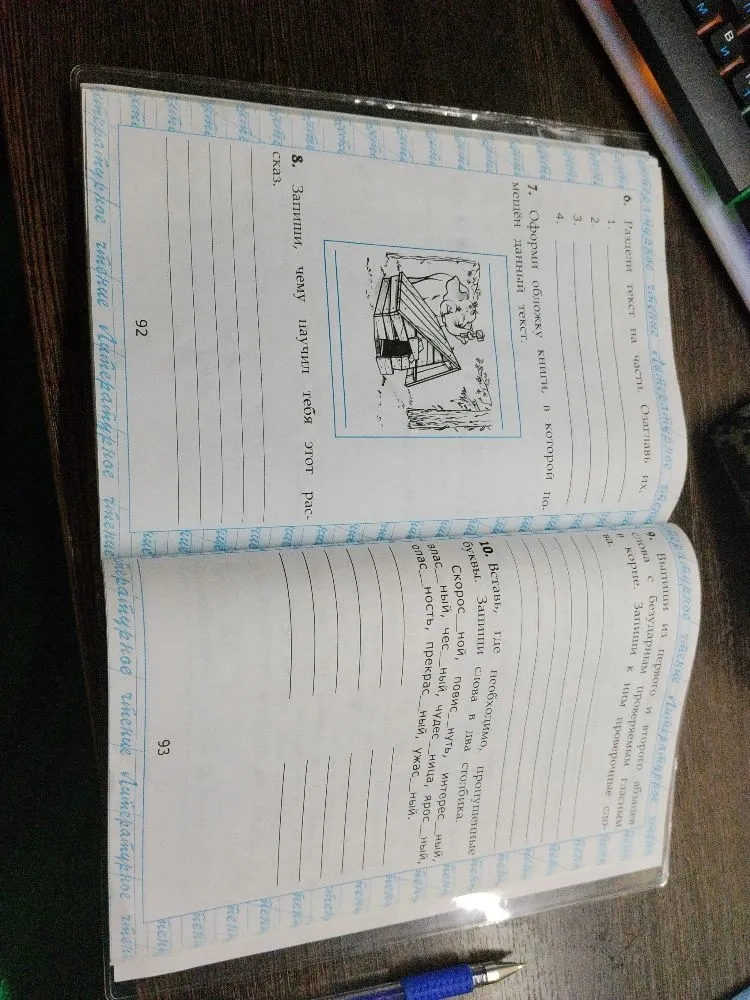 6. Раздели текст на части. Озаглавь их.
1.
2.
3.
4.
7. Оформи обложку книги, в которой по-
мещён данный текст.
8. Запиши, чему научил тебя этот рас-
сказ.
92
9. Выпиши из первого и второго абзацев
слова с безударным проверяемым гласным
в корне. Запиши к ним проверочные сло-
ва.
10. Вставь, где необходимо, пропущенные
буквы. Запиши слова в два столбика.
Скорос__ной, повис__нуть, интерес__ный,
опас__ный, чес__ный, чудес__ница, ярос__ный,
опас__ность, прекрас__ный, ужас__ный.
93
Литературное чтение Литературное чтение Литературное чтение Литературное чтение